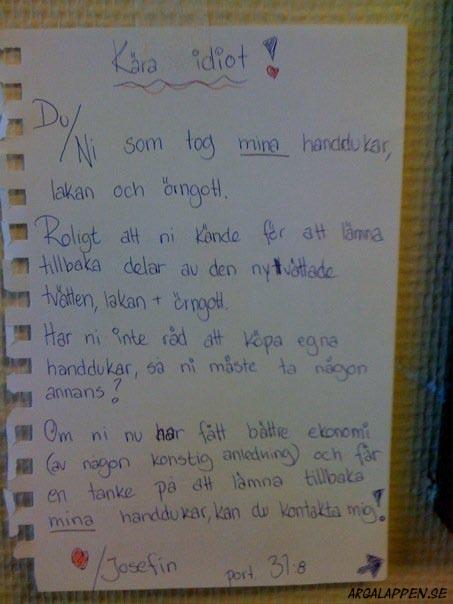 Kära idiot!
Du/
Ni som tog mina handdukar,
lakan och örngott.
Roligt att ni kände för att lämna
tillbaka delar av den nytvättade
tvätten, lakan + örngott.
Har ni inte råd att köpa egna
handdukar, så ni måste ta någon
annans?
Om ni nu har fått bättre ekonomi
(av någon konstig anledning) och får
en tanke på att lämna tillbaka
mina handdukar, kan du kontakta mig!
/Josefin port. 37:8
ARGALAPPEN.SE